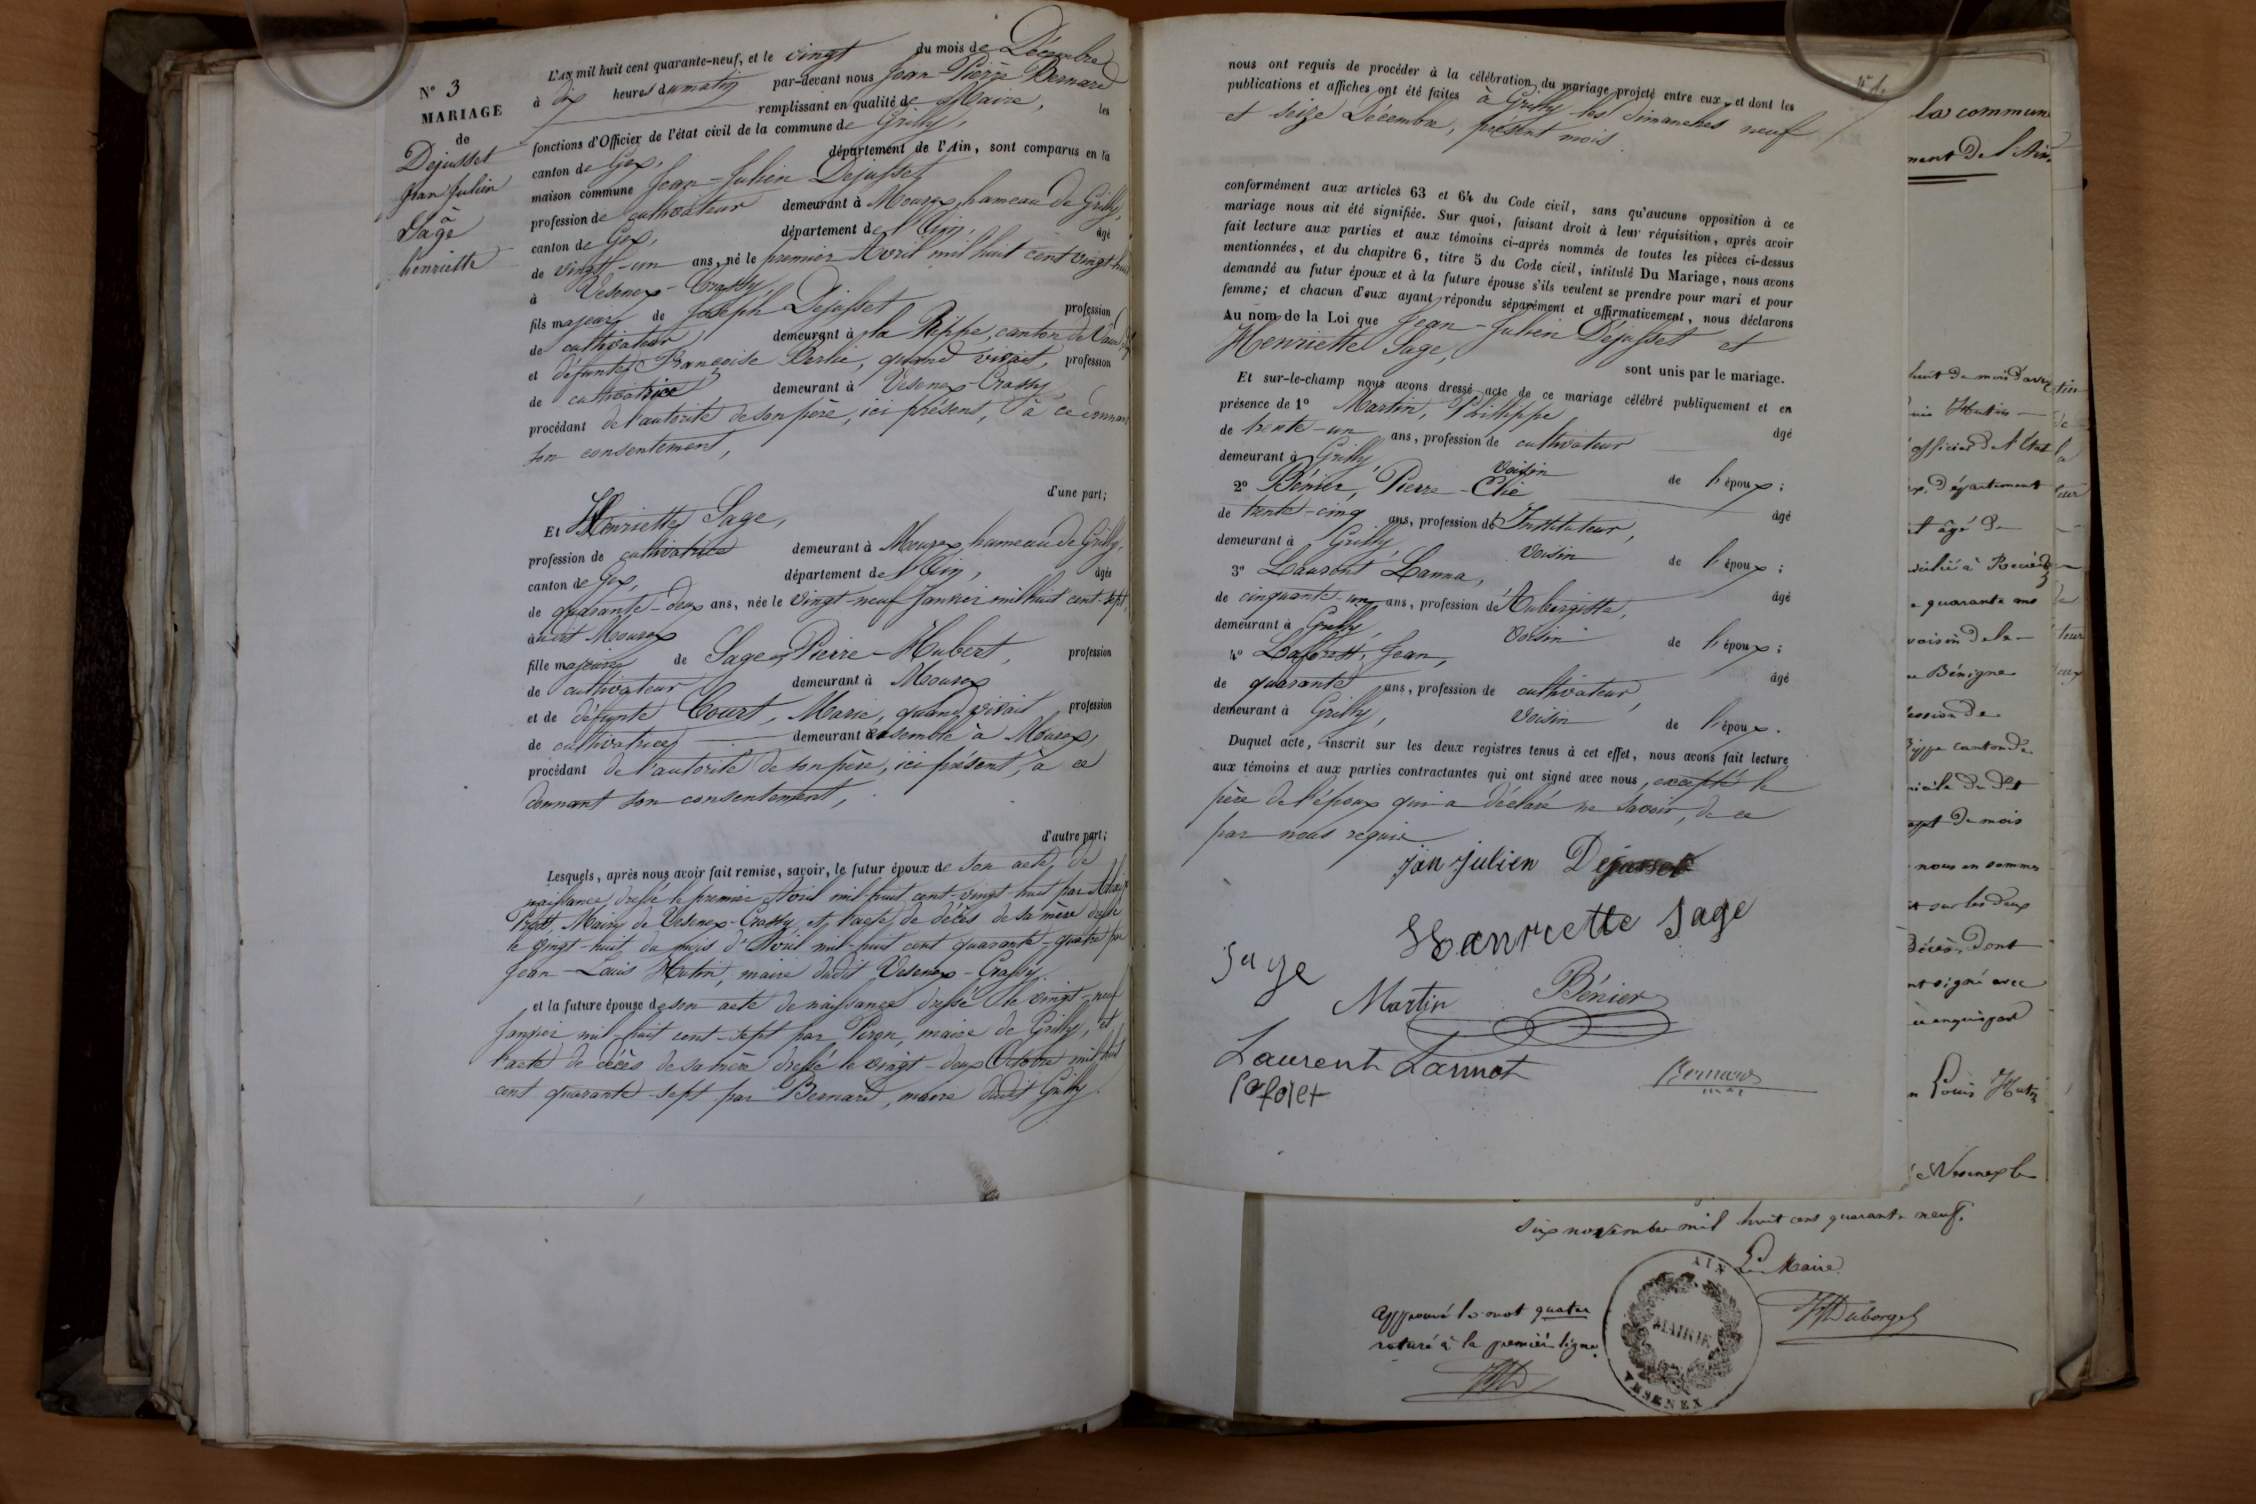 N° 3
MARIAGE
de
Dejusset
Jean Julien
à
Sage
henriette
L'AN mil huit cent quarante-neuf, et le vingt du mois de Décembre
à dix heures du matin par-devant nous Jean-Pierre Bernard
remplissant en qualité de Maire, les
fonctions d'Officier de l'état civil de la commune de Grilly,
canton de Gex, département de l'Ain, sont comparus en la
maison commune Jean-Julien Dejusset
profession de cultivateur demeurant à Mourex, hameau de Grilly,
canton de Gex, département de l'Ain, âgé
de vingt-un ans, né le premier Avril mil huit cent vingt huit
à Vesenex-Crassy,
fils majeur de Joseph Dejusset profession
de cultivateur demeurant à la Rippe, canton de Vaud
et défunte Françoise Berlie, quand vivait, profession
de cultivatrice demeurant à Vesenex-Crassy,
procédant de l'autorité de son père, ici présent, à ce donnant
son consentement,
d'une part;
Et Henriette Sage,
profession de cultivatrice demeurant à Mourex, hameau de Grilly,
canton de Gex, département de l'Ain, âgée
de quarante-deux ans, née le vingt-neuf Janvier mil huit cent-sept,
audit Mourex
fille majeure de Sage Pierre-Hubert, profession
de cultivateur demeurant à Mourex
et de défunte Court, Marie, quand vivait profession
de cultivatrice demeurant ensemble à Mourex,
procédant de l'autorité de son père, ici présent, à ce
donnant son consentement,
d'autre part;
Lesquels, après nous avoir fait remise, savoir, le futur époux de son acte de
naissance dressé le premier Avril mil-huit cent-vingt huit par
Maire de Vesenex-Crassy et l'acte de décès de sa mère dressé
le vingt-huit du mois d'Avril mil-huit cent quarante-quatre par
Jean-Louis Hutin, maire dudit Vesenex-Crassy.
et la future épouse de son acte de naissance dressé le vingt-neuf
Janvier mil-huit cent-sept par Piron, maire de Grilly, et
l'acte de décès de sa mère dressé le vingt-deux Octobre mil huit
cent quarante-sept par Bernard, maire dudit Grilly.
nous ont requis de procéder à la célébration du mariage projeté entre eux, et dont les
publications et affiches ont été faites à Grilly les dimanches neuf
et seize Décembre, présent mois
conformément aux articles 63 et 64 du Code civil, sans qu'aucune opposition à ce
mariage nous ait été signifiée. Sur quoi, faisant droit à leur réquisition, après avoir
fait lecture aux parties et aux témoins ci-après nommés de toutes les pièces ci-dessus
mentionnées, et du chapitre 6, titre 5 du Code civil, intitulé Du Mariage, nous avons
demandé au futur époux et à la future épouse s'ils veulent se prendre pour mari et pour
femme; et chacun d'eux ayant répondu séparément et affirmativement, nous déclarons
Au nom de la Loi que Jean-Julien Déjusset et
Henriette Sage,
sont unis par le mariage.
Et sur-le-champ nous avons dressé acte de ce mariage célébré publiquement et en
présence de 1° Martin, Philippe
âgé
de trente-un ans, profession de cultivateur
demeurant à Grilly, voisin de l'époux;
2° Bénier, Pierre-Elie
âgé
de trente-cinq ans, profession d'Instituteur,
demeurant à Grilly voisin de l'époux;
3° Laurent Lanna,
âgé
de cinquante-un ans, profession d'Aubergiste,
demeurant à Grilly voisin de l'époux;
4° Laforêt, Jean,
âgé
de quarante ans, profession de cultivateur,
demeurant à Grilly, voisin de l'époux.
Duquel acte, inscrit sur les deux registres tenus à cet effet, nous avons fait lecture
aux témoins et aux parties contractantes qui ont signé avec nous, excepté le
père de l'époux qui a déclaré ne savoir, de ce
par nous requis
jan julien Dejusset
Hanrcette sage
sage
Martin Bénier
Laurent Lannot
laforet Bernard
la commun
ment de l'Ain.
huit du mois d'avril
Hutin
officier de l'Etat
département
et âgé de
quarante ans
voisin de la
Bénigne
canton de
de mois
nous en sommes
sur les deux
Décès, Dont
signé avec
Louis Hutin
Vesenex le
dix novembre mil huit cent quarante neuf.
Le Maire
Approuvé le mot quatre
raturé à la première ligne.
AIN
MAIRIE
VESENEX